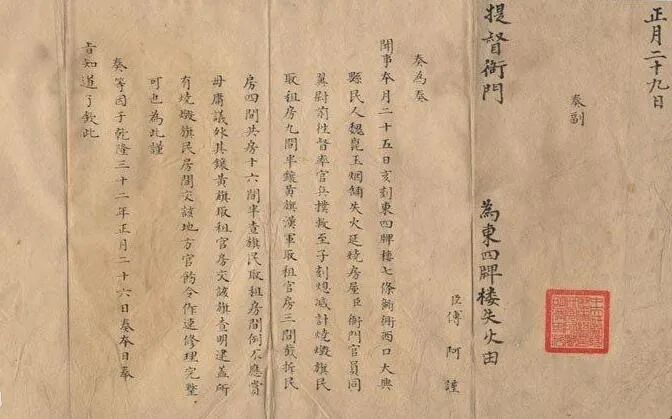 正月二十九日
奏副
提督衙門 為東四牌楼失火由
臣傅 阿 謹
奏為奏
聞事本月二十五日亥刻東四牌樓七條衚衕西口大興
縣民人魏崑玉烟舖失火延燒房屋臣衙門官員同
翼尉前往督率官兵撲救至子刻熄滅計燒燬旗民
取租房九間半鑲黃旗漢軍取租官房三間截拆民
房四間共房十六間半查旗民取租房間例不應賞
毋庸議外其鑲黃旗取租官房交該旗查明建盖所
有燒燬旗民房間交該地方官飭令作速修理完整
可也為此謹
奏等因于乾隆三十二年正月二十六日奏本日奉
旨知道了欽此